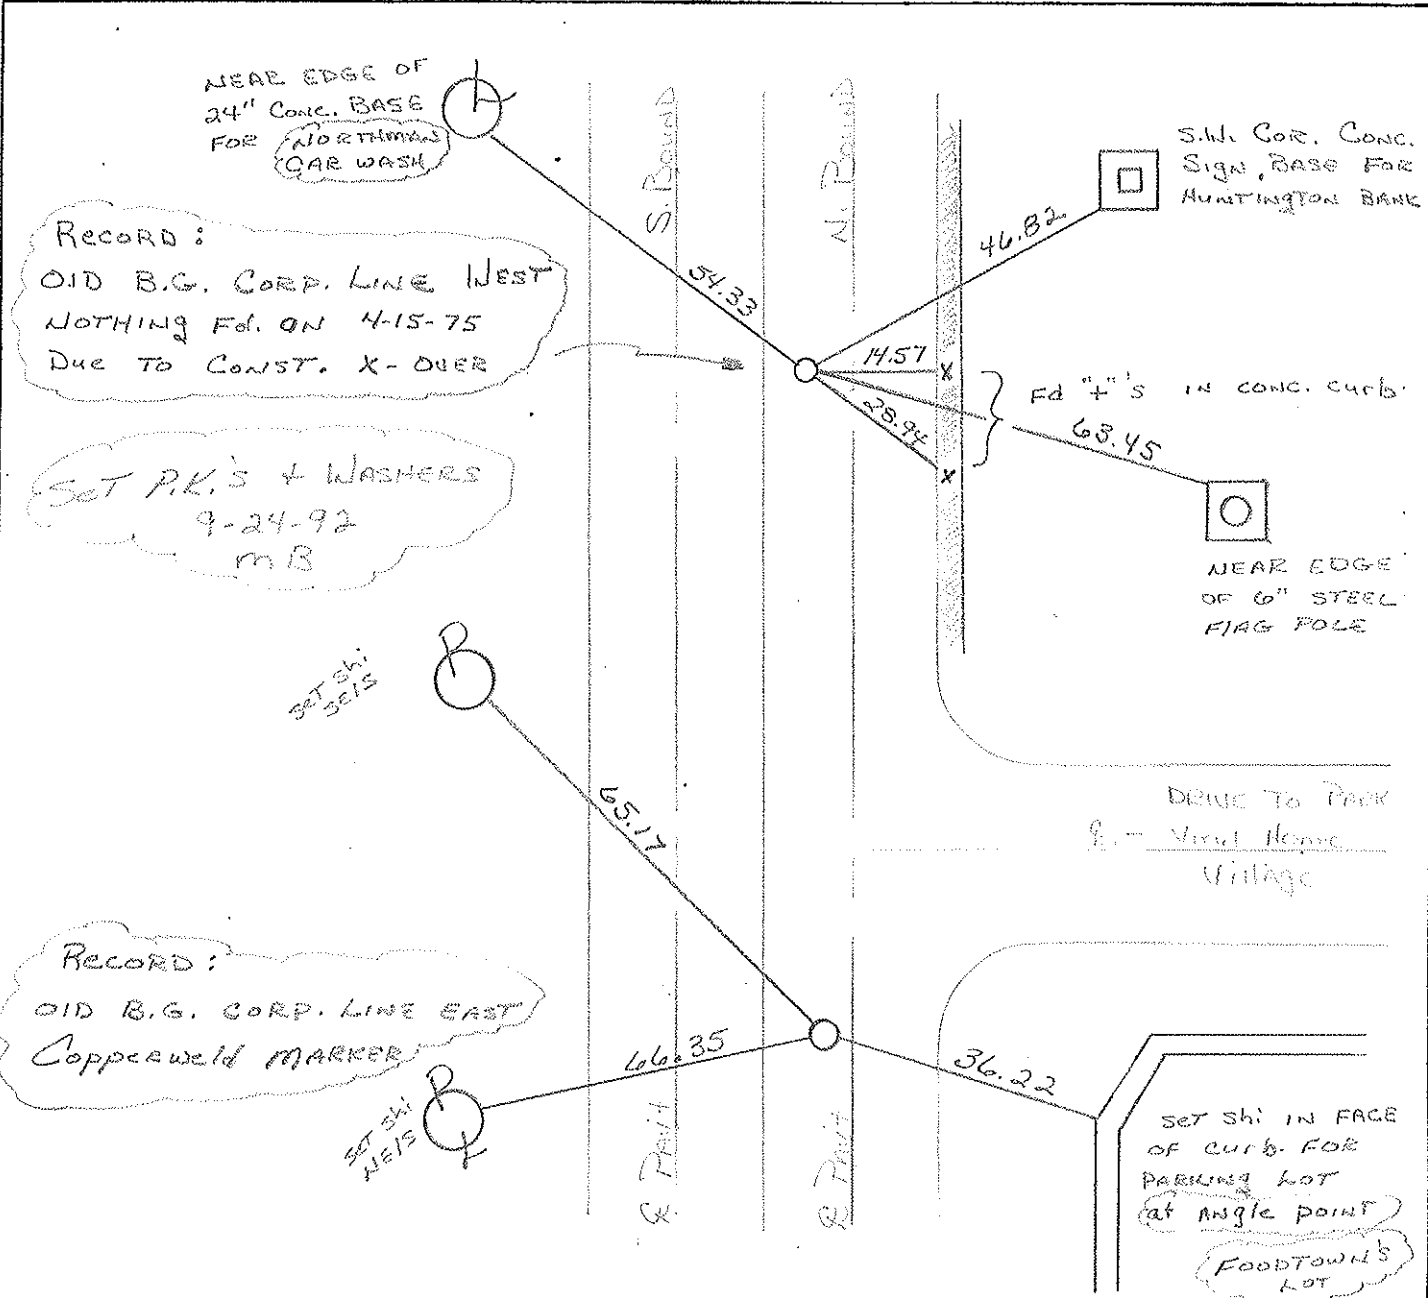 NEAR EDGE OF
24" CONC. BASE
FOR NORTHMAN
CAR WASH
S. BOUND
N. BOUND
S.W. COR. CONC.
SIGN BASE FOR
HUNTINGTON BANK
46.82
54.33
RECORD:
OlD B.G. CORP. LINE WEST
NOTHING Fd. ON 4-15-75
DUE TO CONST. X-OVER
14.57
x
28.94
x
Fd "+"'s IN CONC. Curb
63.45
SET P.K.'S + WASHERS
9-24-92
MB
NEAR EDGE
OF 6" STEEL
FlAG POLE
P
SET Shi
SE/S
65.17
DRIVE TO PARK
Village
RECORD:
OlD B.G. CORP. LINE EAST
Copperweld MARKER
66.35
36.22
P
L
SET Shi
NE/S
℄ PAV't
℄ PAV't
SET Shi IN FACE
OF curb. FOR
PARKING LOT
at ANgle POINT
FOODTOWN'S
LOT